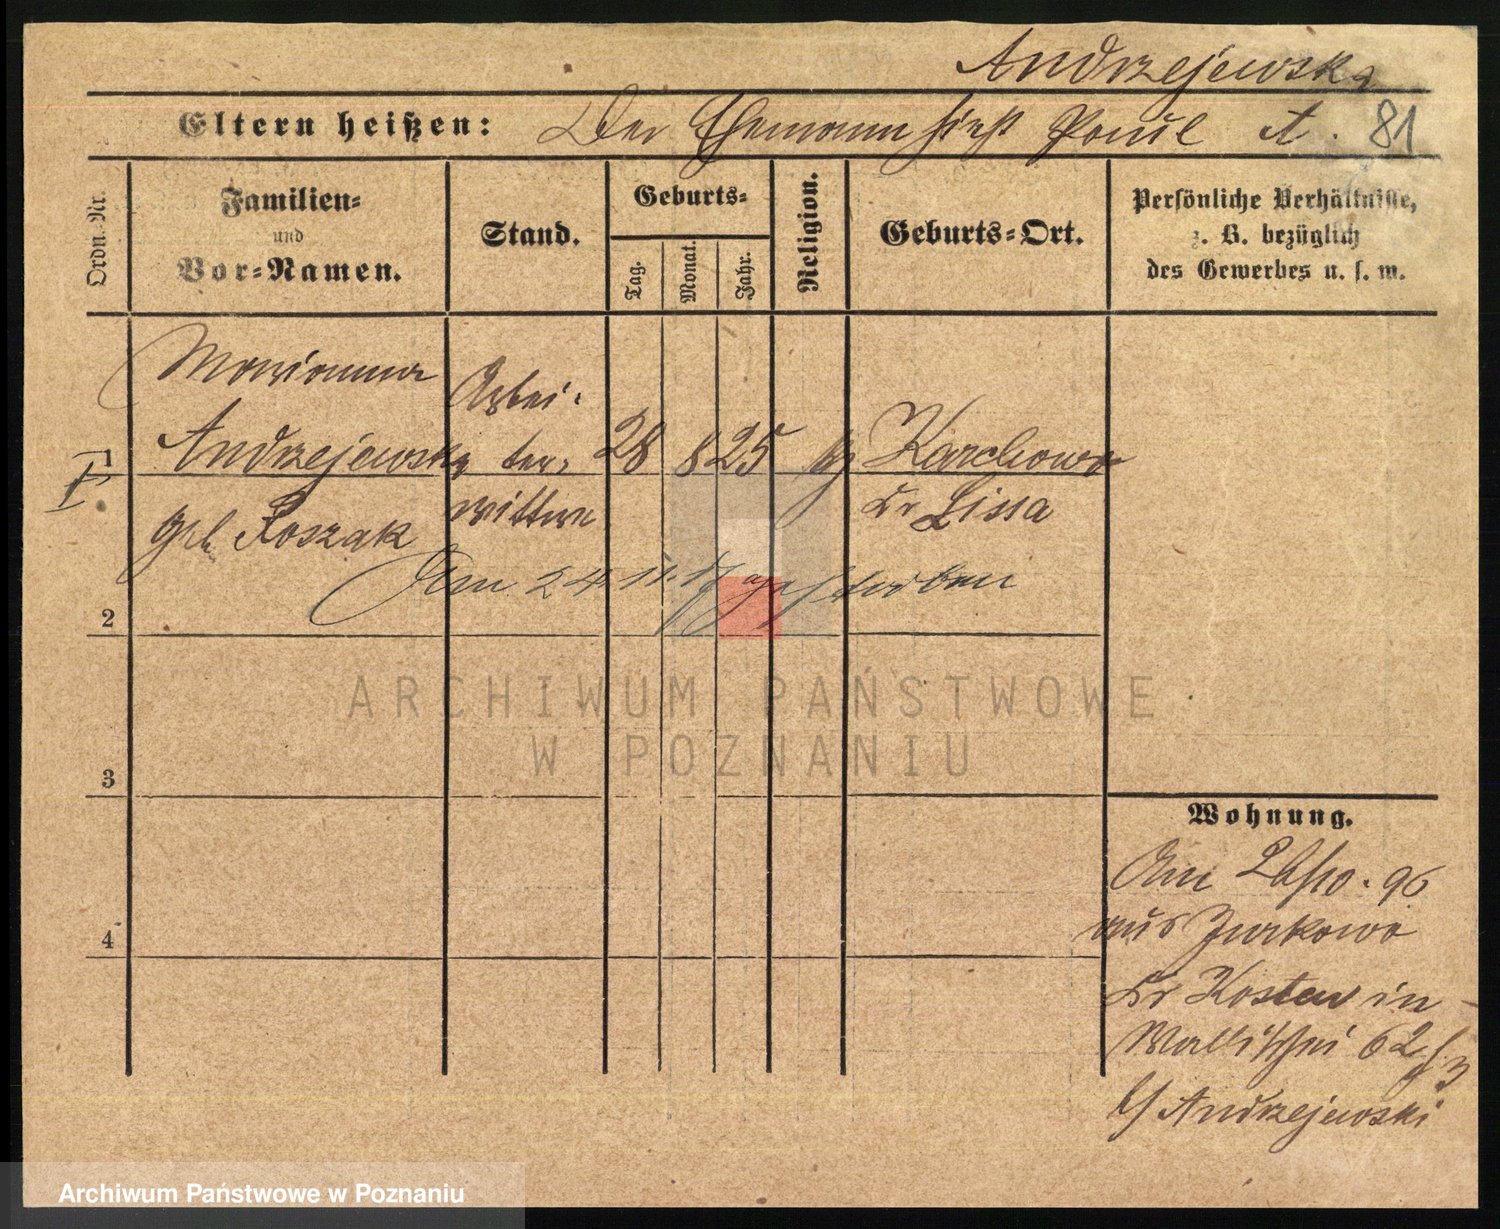 Andrzejewska
Eltern heißen: Der Ehemann hieß Paul A. 81
Ordn.-Nr.
Familien-
und
Vor-Namen.
Stand.
Geburts-
Tag.
Monat.
Jahr.
Religion.
Geburts-Ort.
Persönliche Verhältnisse,
z. B. bezüglich
des Gewerbes u. s. w.
Marianna
Andrzejewska
geb Roszak
Arbei-
ter-
wittwe
28 8 25
Karchowo
Kr Lissa
Am 24.11. gestorben
2
3
4
Wohnung.
Am 96
aus Jurkowo
Kr Kosten in
Wallischei 62
b/ Andrzejewski
ARCHIWUM PAŃSTWOWE
W POZNANIU
Archiwum Państwowe w Poznaniu